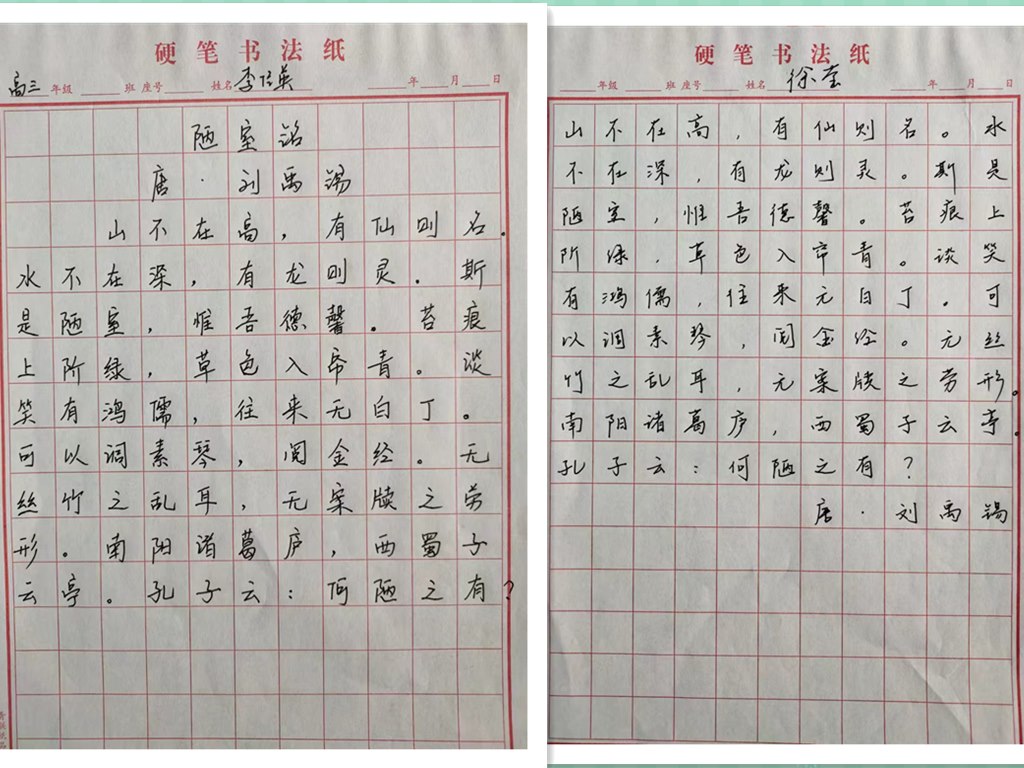 硬笔书法纸
高三年级 班 座号 姓名 李信英 年 月 日
陋室铭
唐·刘禹锡
山不在高，有仙则名。
水不在深，有龙则灵。斯
是陋室，惟吾德馨。苔痕
上阶绿，草色入帘青。谈
笑有鸿儒，往来无白丁。
可以调素琴，阅金经。无
丝竹之乱耳，无案牍之劳
形。南阳诸葛庐，西蜀子
云亭。孔子云：何陋之有？
硬笔书法纸
年级 班 座号 姓名 徐莹 年 月 日
山不在高，有仙则名。水
不在深，有龙则灵。斯是
陋室，惟吾德馨。苔痕上
阶绿，草色入帘青。谈笑
有鸿儒，往来无白丁。可
以调素琴，阅金经。无丝
竹之乱耳，无案牍之劳形。
南阳诸葛庐，西蜀子云亭。
孔子云：何陋之有？
唐·刘禹锡